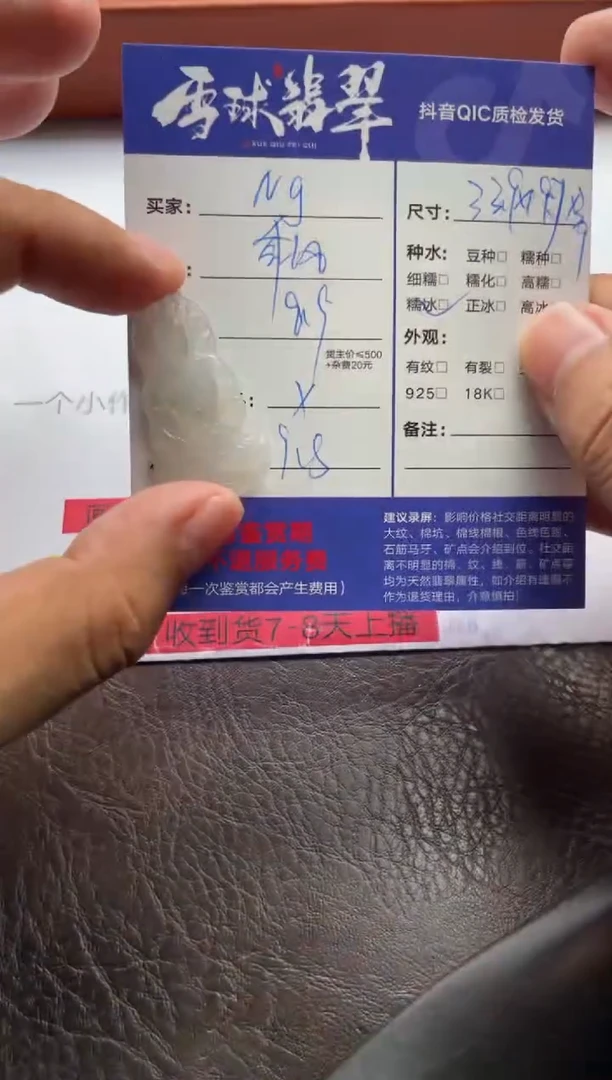 雪球翡翠
XUE QIU FEI CUI
抖音QIC质检发货
买家：
Ng
915
货主价≤500
+杂费20元
X
918
尺寸：
种水： 豆种□ 糯种□
细糯□ 糯化□ 高糯□
糯冰□ 正冰□ 高冰
外观：
有纹□ 有裂□
925□ 18K□
备注：
一次鉴赏都会产生费用）
建议录屏：影响价格社交距离明显的
大纹、棉坑、棉线棉根、色线色筋、
石筋马牙、矿点会介绍到位。社交距
离不明显的棉、纹、缘、筋、矿点等
均为天然翡翠属性，如介绍有遗漏不
作为退货理由，介意慎拍！
一个小
收到货7-8天上播